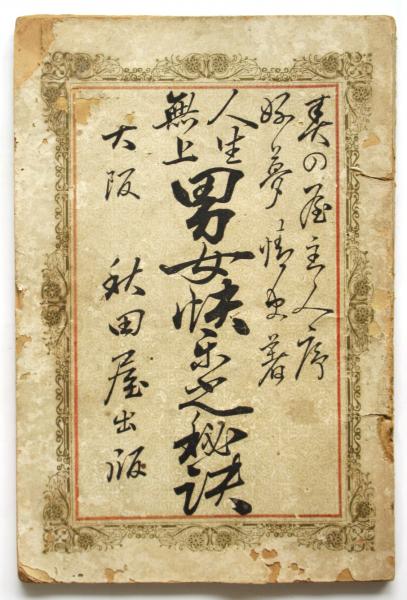 春の屋主人序
好夢情史著
人生
無上
男女快楽之秘訣
大阪 秋田屋出版